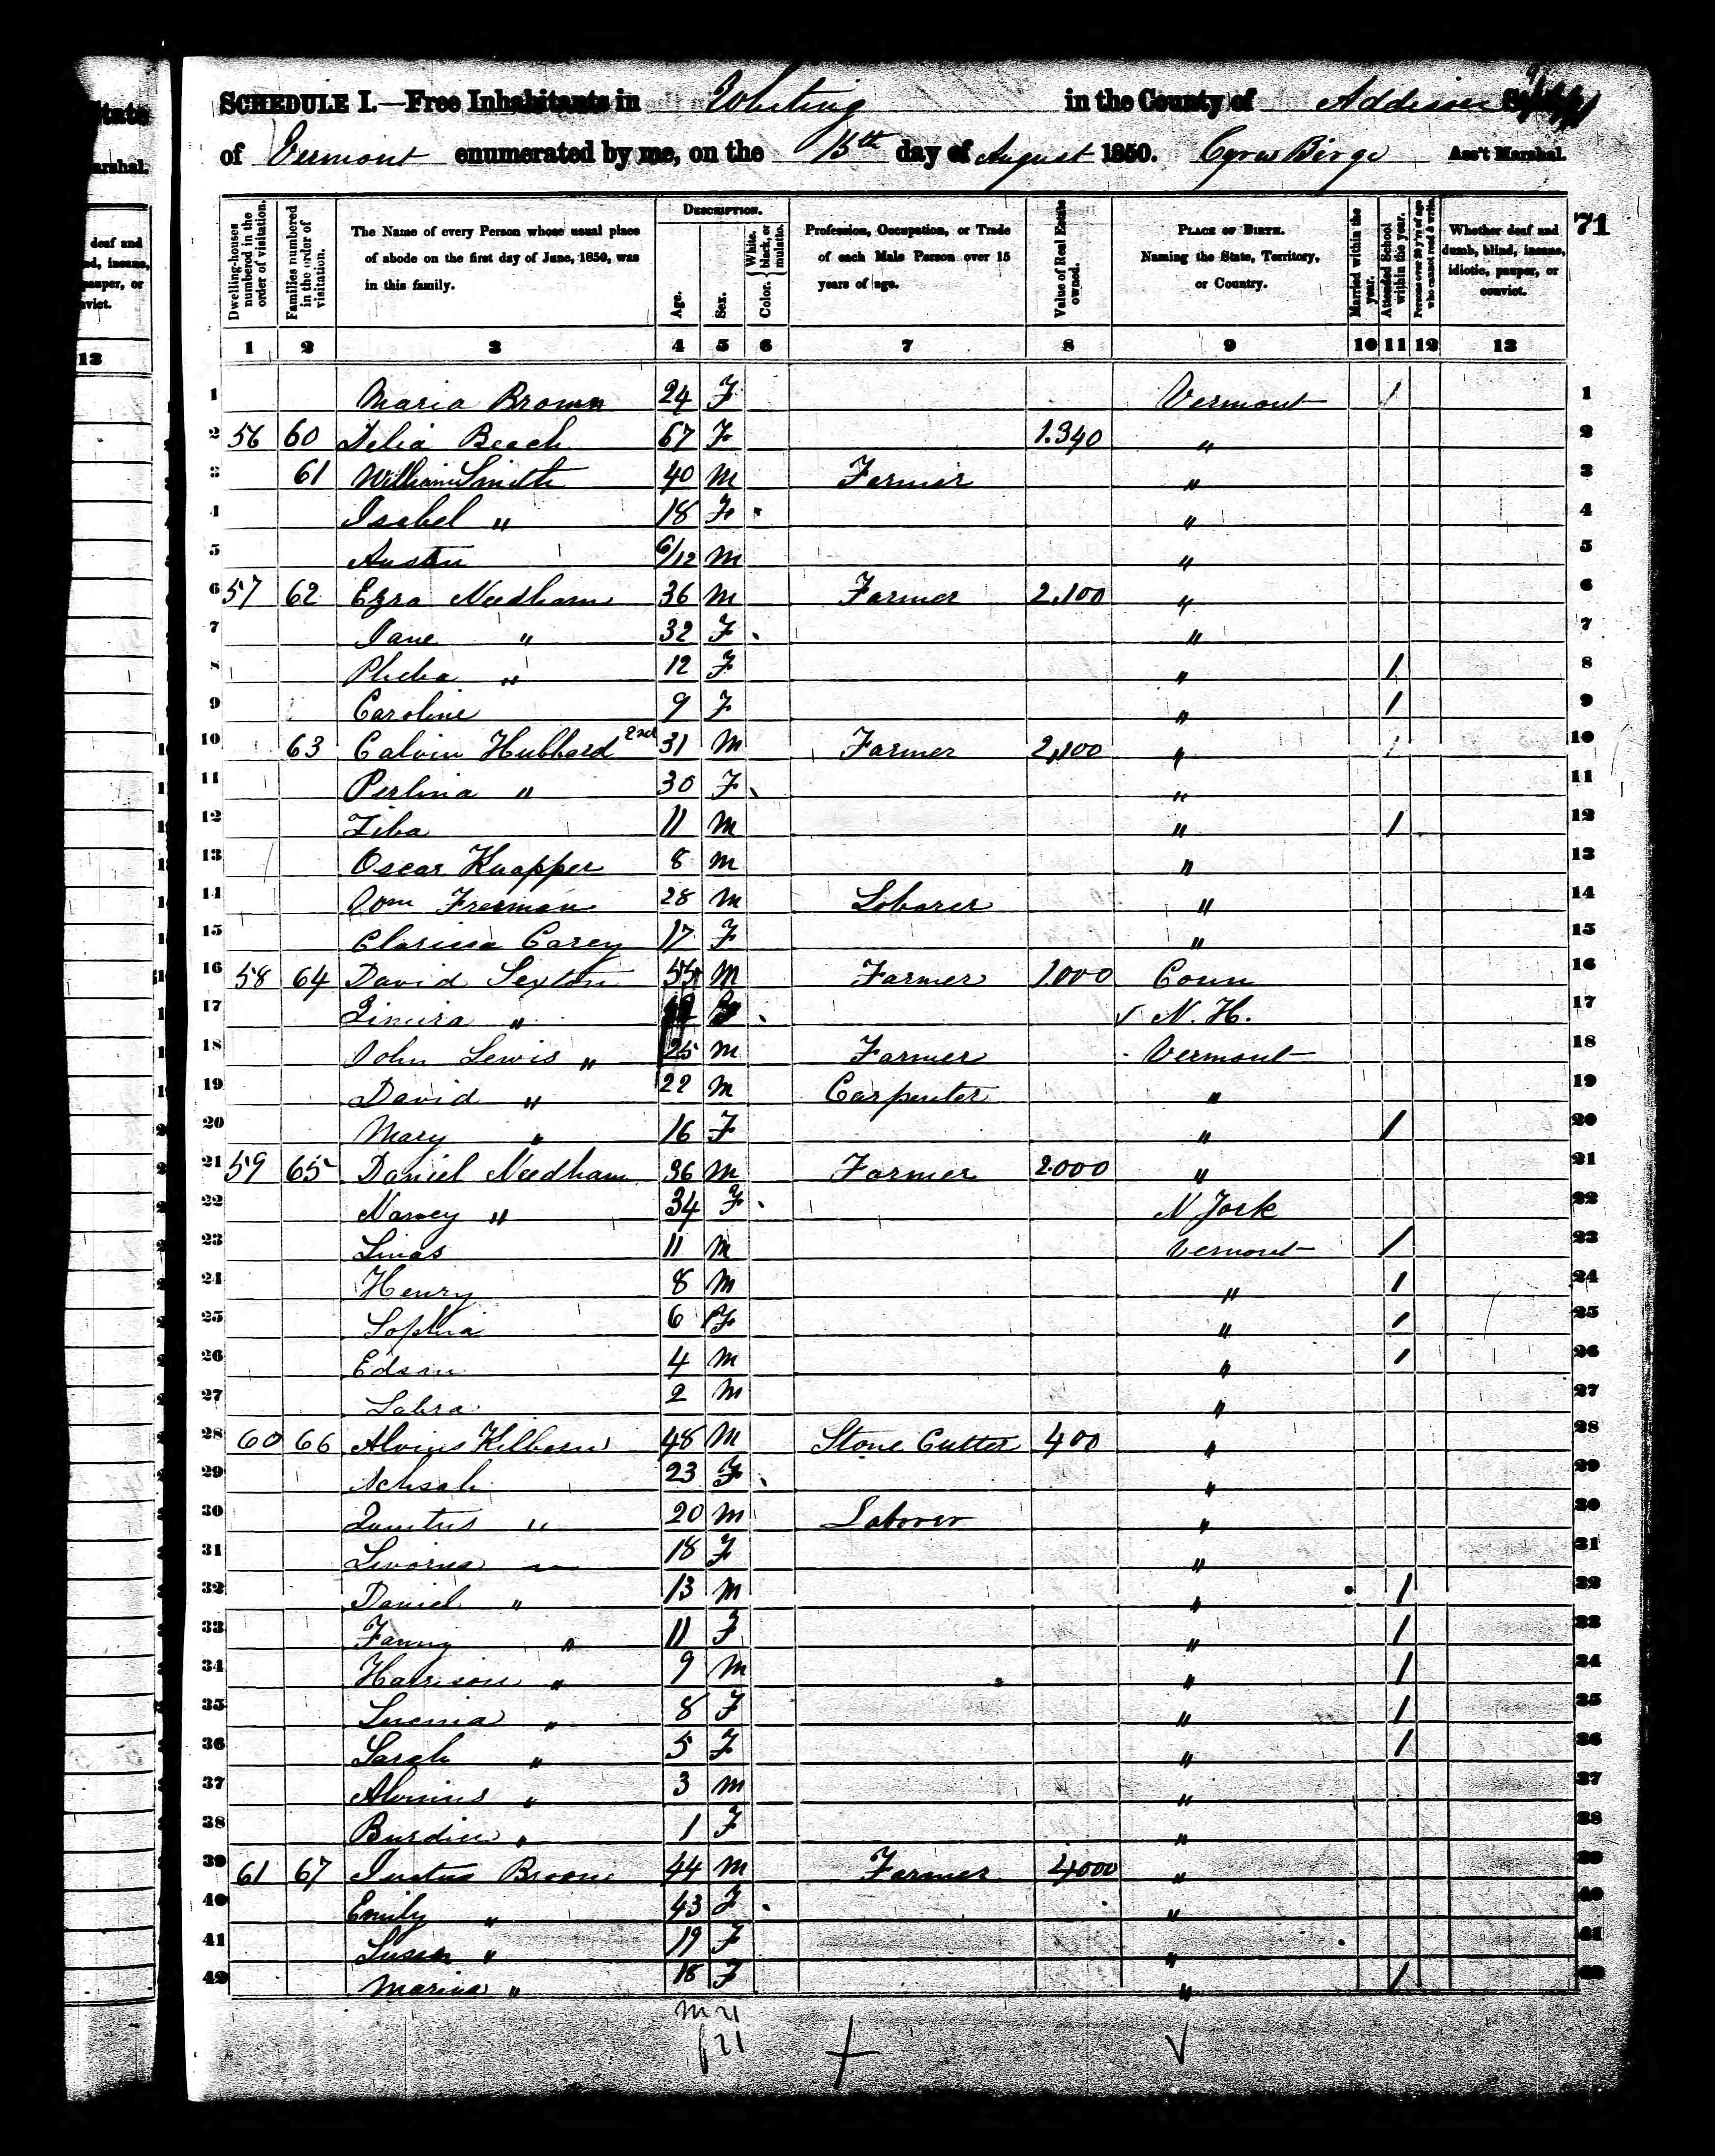 SCHEDULE I.—Free Inhabitants in Whiting in the County of Addison
of Vermont enumerated by me, on the 15th day of August 1850. Cyrus Birge Ass't Marshal.
71
Dwelling-houses numbered in the order of visitation.
Families numbered in the order of visitation.
The Name of every Person whose usual place of abode on the first day of June, 1850, was in this family.
DESCRIPTION.
Age.
Sex.
Color. { White, black, or mulatto.
Profession, Occupation, or Trade of each Male Person over 15 years of age.
Value of Real Estate owned.
PLACE OF BIRTH. Naming the State, Territory, or Country.
Married within the year.
Attended School within the year.
Persons over 20 y'rs of age who cannot read & write.
Whether deaf and dumb, blind, insane, idiotic, pauper, or convict.
1 2 3 4 5 6 7 8 9 10 11 12 13
1 Maria Brown 24 F Vermont / 1
2 56 60 Delia Beach 67 F 1.340 " 2
3 61 William Smith 40 M Farmer " 3
4 Isabel " 18 F " 4
5 Austin 6/12 M " 5
6 57 62 Ezra Needham 36 M Farmer 2.100 " 6
7 Jane " 32 F " 7
8 Pheba " 12 F " / 8
9 Caroline 9 F " / 9
10 63 Calvin Hubbard 2nd 31 M Farmer 2,100 " 10
11 Perlina " 30 F " 11
12 Ziba 11 M " / 12
13 Oscar Knapper 8 M " 13
14 Freeman 28 M Laborer " 14
15 Clarissa Carey 17 F " 15
16 58 64 David Sexton 55 M Farmer 1.000 Conn 16
17 " N. H. 17
18 John Lewis " 25 M Farmer Vermont 18
19 David " 22 M Carpenter " 19
20 Mary " 16 F " / 20
21 59 65 Daniel Needham 36 M Farmer 2.000 " 21
22 Nancy " 34 F N York 22
23 Linas 11 M Vermont / 23
24 Henry 8 M " / 24
25 Sophia 6 F " / 25
26 Edson 4 M " / 26
27 2 M " 27
28 60 66 Alvins Kilborn 48 M Stone Cutter 400 " 28
29 Achsah 23 F " 29
30 Quintus " 20 M Laborer " 30
31 18 F " 31
32 Daniel " 13 M " / 32
33 Fanny " 11 F " / 33
34 Harrison " 9 M " / 34
35 " 8 F " / 35
36 Sarah " 5 F " / 36
37 " 3 M " 37
38 " 1 F " 38
39 61 67 Justus Brown 44 M Farmer 4,000 " 39
40 Emily " 43 F " 40
41 Susan " 19 F " 41
42 " 18 F " / 42
M 21
f 21